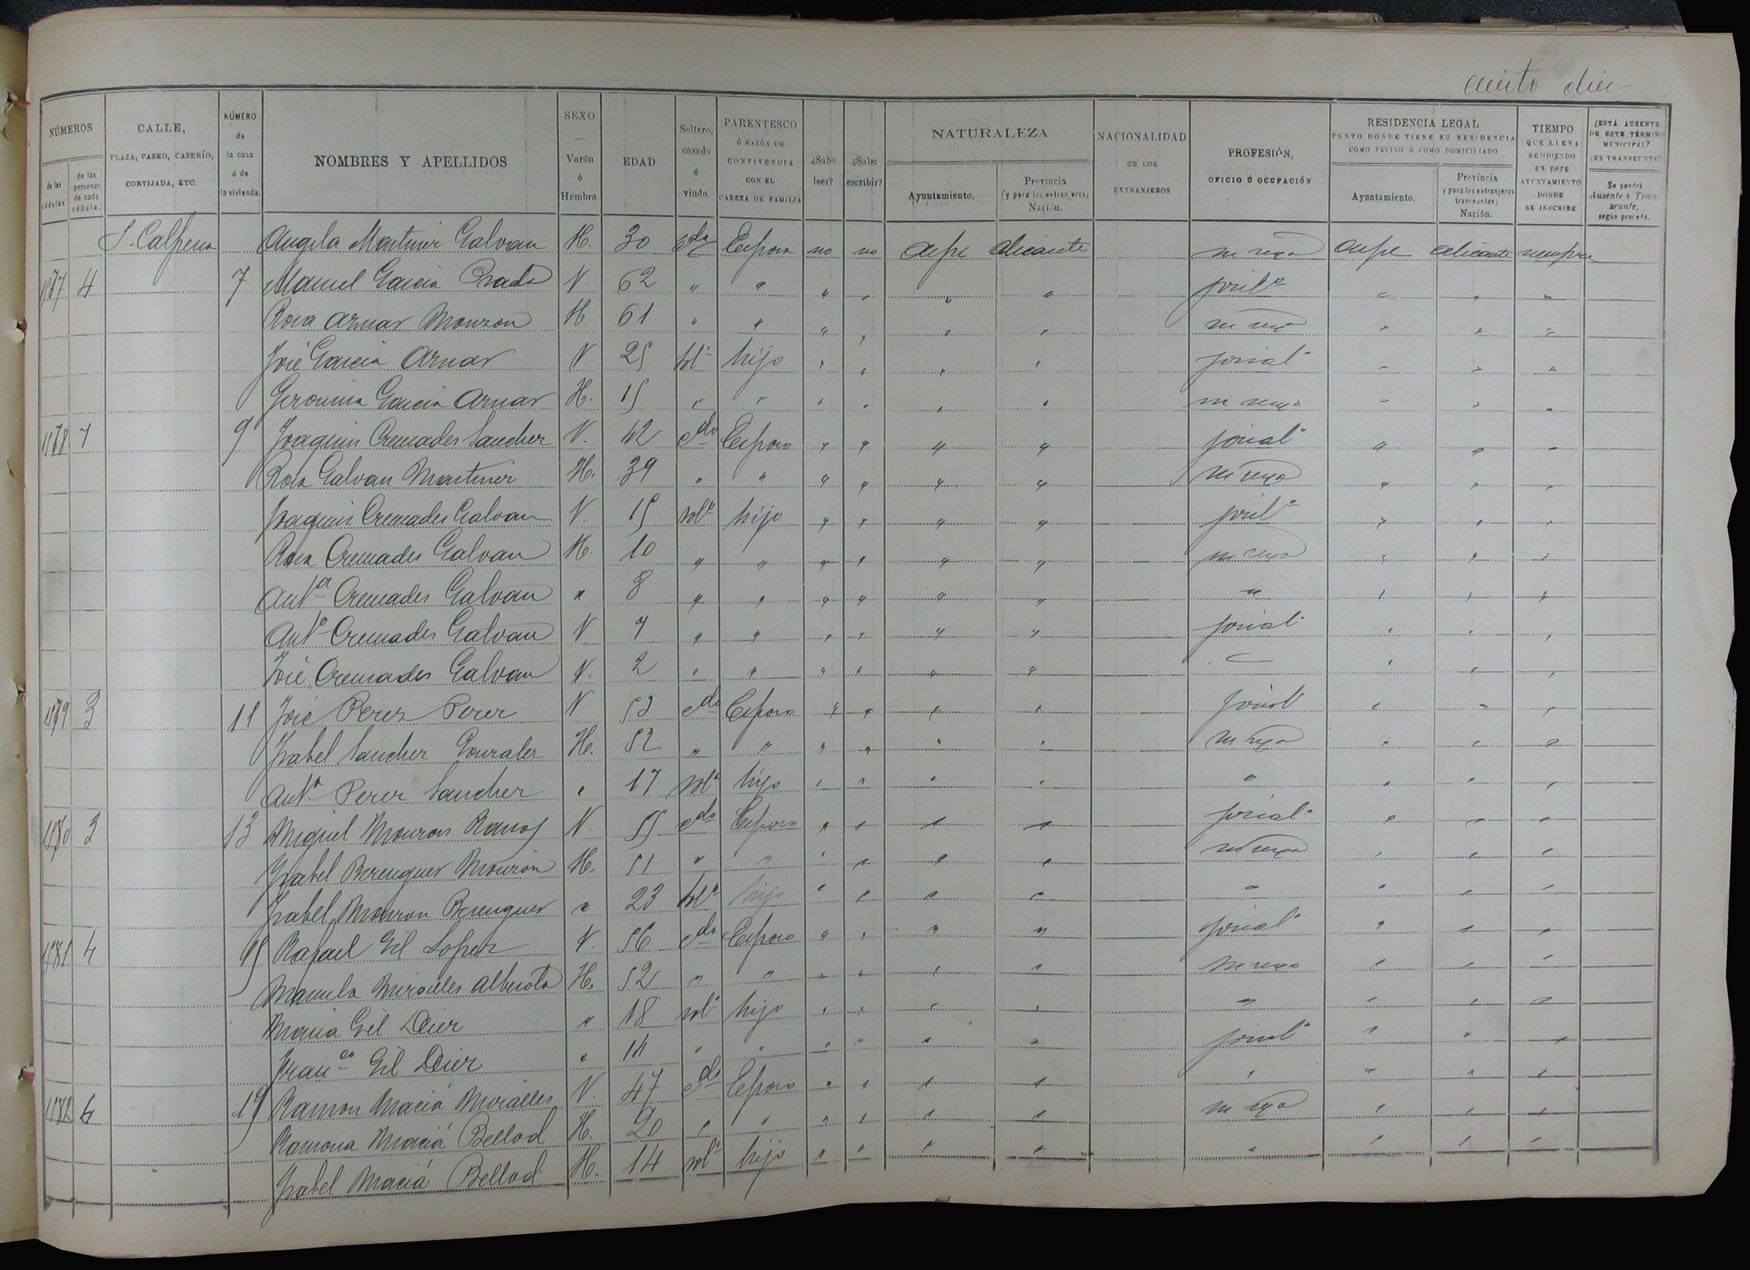 ciento diez
NÚMEROS
de las cédulas.
de las personas de cada cédula.
CALLE, PLAZA, PASEO, CASERÍO, CORTIJADA, ETC.
NÚMERO de la casa ó de la vivienda.
NOMBRES Y APELLIDOS
SEXO — Varón ó Hembra.
EDAD
Soltero, casado ó viudo.
PARENTESCO Ó RAZÓN DE CONVIVENCIA CON EL CABEZA DE FAMILIA
¿Sabe leer?
¿Sabe escribir?
NATURALEZA
Ayuntamiento.
Provincia (y para los extranjeros) Nación.
NACIONALIDAD DE LOS EXTRANJEROS
PROFESIÓN, OFICIO Ó OCUPACIÓN
RESIDENCIA LEGAL
PUNTO DONDE TIENE SU RESIDENCIA COMO VECINO Ó COMO DOMICILIADO
Ayuntamiento.
Provincia y para los extranjeros transeuntes) Nación.
TIEMPO QUE LLEVA RESIDIENDO EN ESTE AYUNTAMIENTO DONDE SE INSCRIBE
¿ESTÁ AUSENTE DE ESTE TÉRMINO MUNICIPAL? ¿ES TRANSEUNTE?
Se pondrá Ausente ó Transeunte, según proceda.
S. Calpena Angela Martinez Galvan H. 30 cda Esposa no no Aspe Alicante su sexo Aspe Alicante siempre
1177 4 7 Manuel Garcia Prado V. 62 " " " " " " jornl " " "
Rosa Aznar Monzon H. 61 " " " " " " su sexo " " "
José Garcia Aznar V 25 sol hijo " " " " jornal " " "
Geronima Garcia Aznar H. 15 " " " " " " su sexo " " "
1178 7 9 Joaquin Cremades Sanchez V. 42 cdo Esposo " " " " jornal " " "
Rosa Galvan Martinez H. 39 " " " " " " su sexo " " "
Joaquin Cremades Galvan V. 15 solº hijo " " " " jornl " " "
Rosa Cremades Galvan H. 10 " " " " " " su sexo " " "
Antª Cremades Galvan " 8 " " " " " " " " " "
Antº Cremades Galvan V. 7 " " " " " " jornal " " "
José Cremades Galvan V. 2 " " " " " " " " "
1179 3 11 José Perez Perez V 53 cdo Esposo " " " " jornl " " "
Isabel Sanchez Gonzalez H. 52 " " " " " " su sexo " " "
Antª Perez Sanchez " 17 solª hijo " " " " " " " "
1180 3 13 Miguel Monzon Ramos V. 55 cdo Esposo " " " " jornal " " "
Isabel Berenguer Monzon H. 51 " " " " " " su sexo " " "
Isabel Monzon Berenguer " 23 solª hijo " " " " " " " "
1181 4 15 Rafael Gil Lopez V. 56 cdo Esposo " " " " jornal " " "
Manuela Miralles Alberola H. 52 " " " " " " su sexo " " "
Maria Gil Diez " 18 solª hijo " " " " " " " "
Francº Gil Diez " 14 " " " " " " jornl " " "
1182 4 19 Ramon Maciá Miralles V. 47 cdo Esposo " " " " " " " "
Ramona Maciá Bellod H. 20 " " " " " " su sexo " " "
Isabel Maciá Bellod H. 14 solª hijo " " " " " " " "